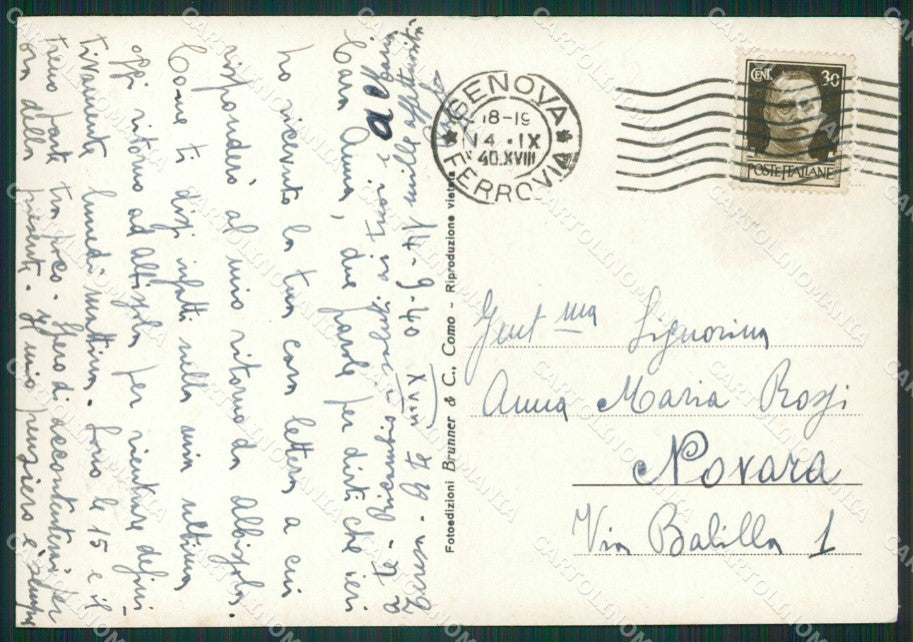 GENOVA
FERROVIA
18-19
4 · IX
40.XVIII
CENT. 30
POSTE ITALIANE
Gent ma Signorina
Anna Maria Rossi
Novara
Via Balilla 1
Fotoedizioni Brunner & C., Como - Riproduzione vietata
4-9-40 XVIII
Cara Anna, due parole per dirti che ieri
ho ricevuto la tua cara lettera a cui
risponderò al mio ritorno da Albisola.
Come ti dissi infatti nella mia ultima
oggi ritorno ad Albisola per rientrare defini-
tivamente lunedì mattina. Sono le 15 e il
treno parte tra poco. Spero di accontentarti per
ora della presente. Il mio pensiero è sempre
a te - Ricambio i saluti ai tuoi e a
A te mille affettuosità
CARTOLINOMANIA